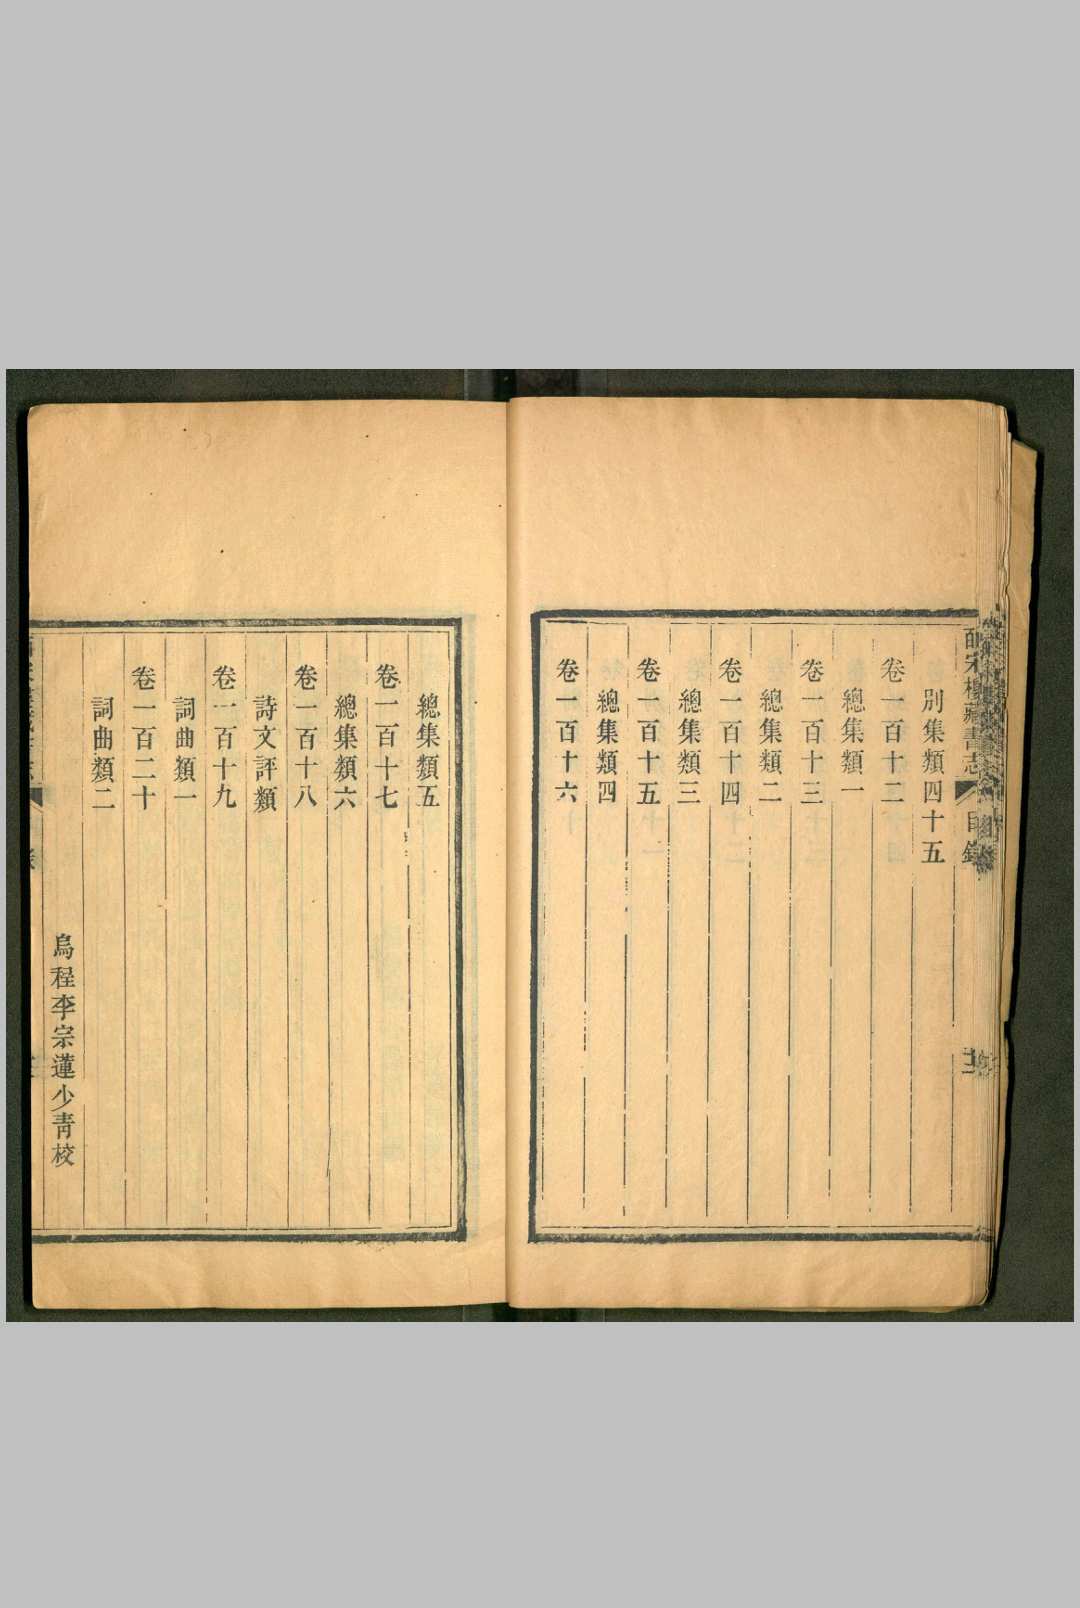 皕宋樓藏書志 目錄
別集類四十五
卷一百十二
總集類一
卷一百十三
總集類二
卷一百十四
總集類三
卷一百十五
總集類四
卷一百十六
總集類五
卷一百十七
總集類六
卷一百十八
詩文評類
卷一百十九
詞曲類一
卷一百二十
詞曲類二
烏程李宗蓮少青校